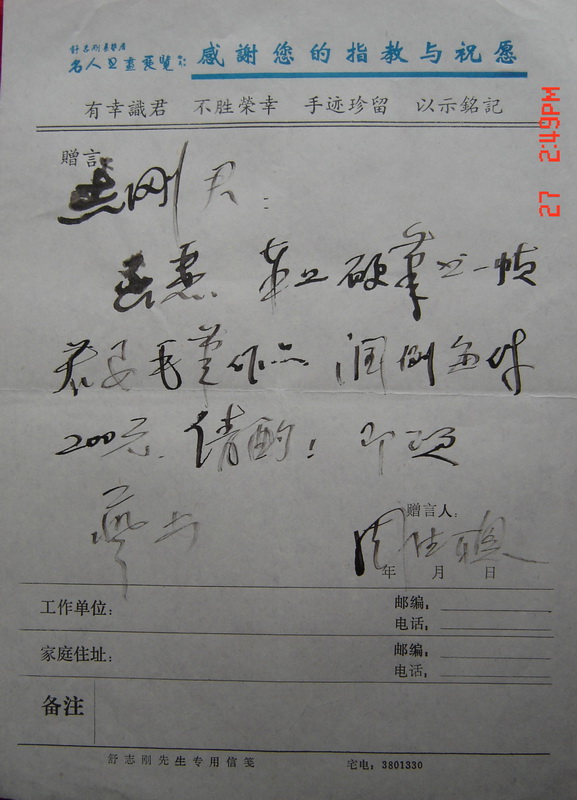 舒志刚
名人书画展览
感謝您的指教与祝愿
有幸識君 不胜榮幸 手迹珍留 以示銘記
27 2:49PM
赠言:
志刚君:
奉上硬筆书一帧
若要毛筆作品 润例每件
200元.请酌! 即颂
赠言人:
年 月 日
工作单位:
邮编:
电话:
家庭住址:
邮编:
电话:
备注
舒志刚先生专用信笺 宅电:3801330